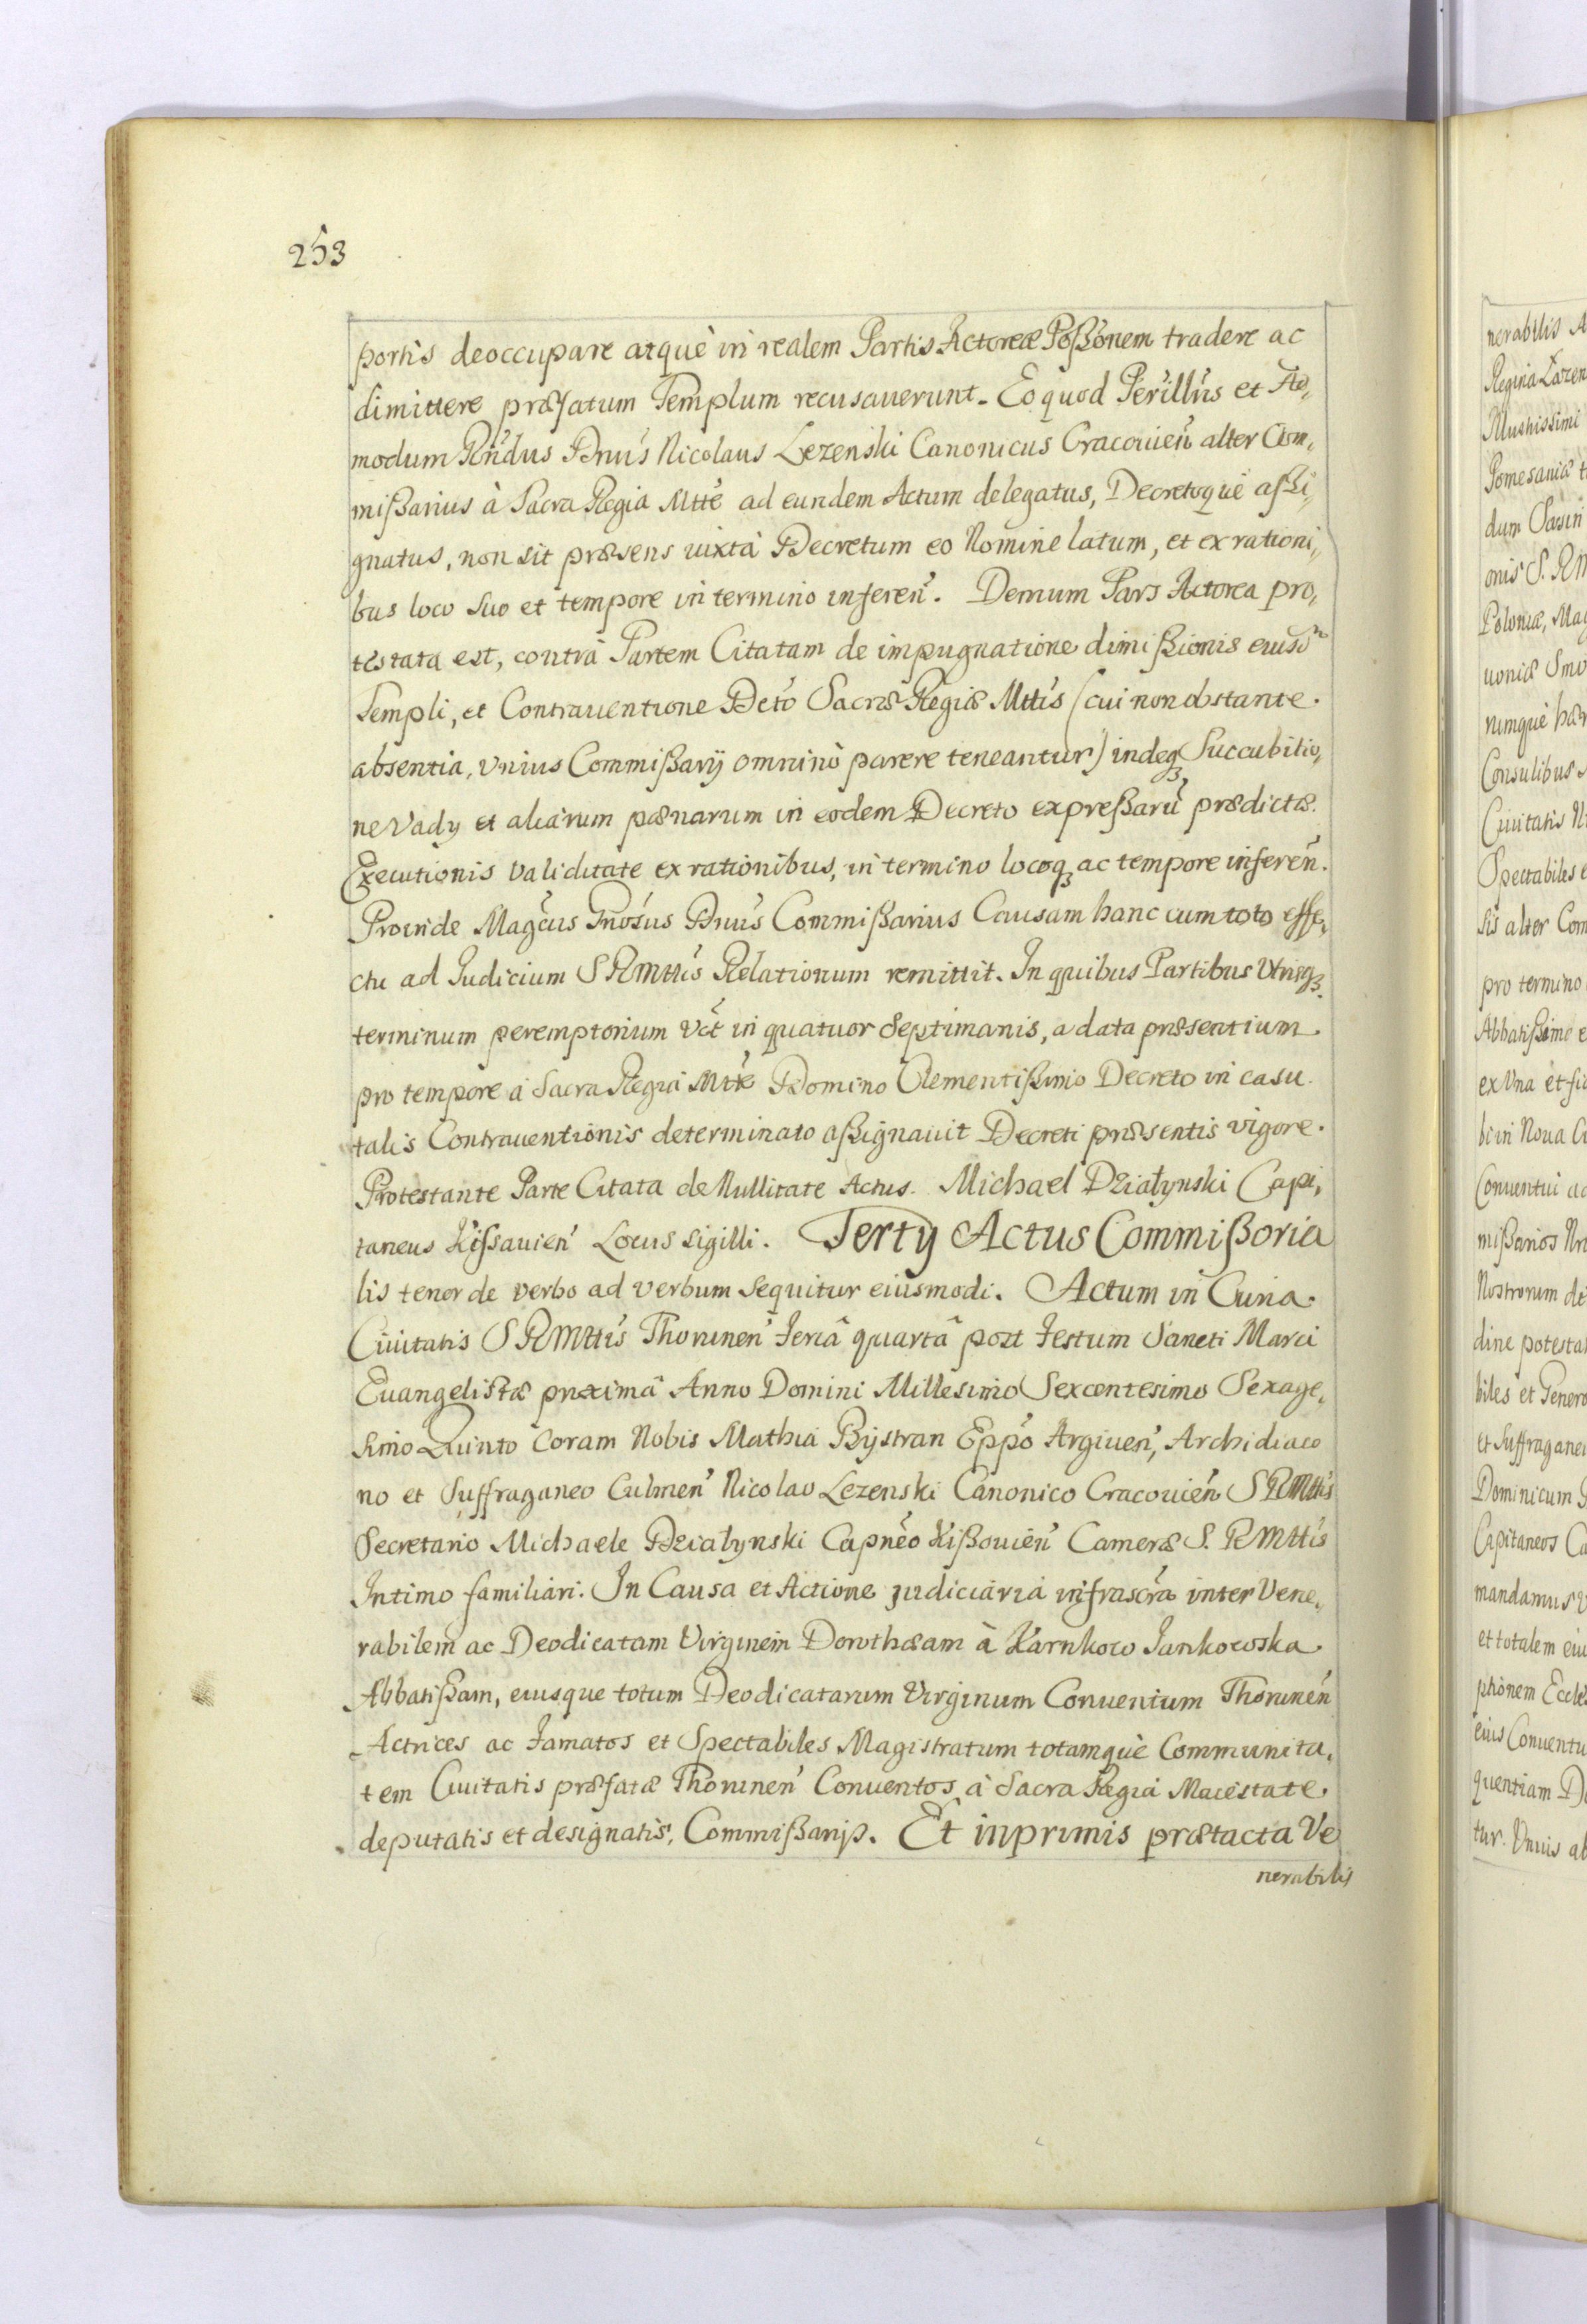 253
portis deoccupare atquè in realem Partis Actoreæ Poßönem tradere ac
dimittere præfatum Templum recusauerunt. Eo quod Perill̃ris et Ad,
modum Rñdus Dnús Nicolaus Lezenski Canonicus Cracouień alter Com,
mißarius à Sacra Regia Mtté ad eundem Actum delegatus, Decretoquè aßi,
gnatus, non sit præsens iuxtà Decretum eo Nomine latum, et ex rationi,
bus loco suo et tempore in termino infereń. Demum Pars Actorea pro,
testata est, contrà Partem Citatam de impugnatione dimißionis eiusd̃
Templi, et Contrauentione Dcto Sacræ Regiæ Mttis (cui non obstante
absentia, Vnius Commißarij omninò parere teneantur) indeq3 Succubitio,
ne Vadÿ et aliarum pænarum in eodem Decreto expreßarũ prædictæ
Executionis Validitate ex rationibus, in termino locoq3 ac tempore inferen̄.
Proinde Magćus Gnósus Dnús Commißarius Causam hanc cum toto effe,
ctu ad Iudicium S R Mttis Relationum remittit. In quibus Partibus Vtrisq3
terminum peremptorium Vćt in quatuor Septimanis, a data præsentium
pro tempore à Sacra Regià Mtté Domino Clementißimo Decreto in casu
talis Contrauentionis determinato aßignauit Decreti præsentis vigore.
Protestante Parte Citata de Nullitate Actus. Michael Działynski Capi,
taneus Kißauień Locus Sigilli. Tertÿ Actus Commißoria
lis tenor de verbo ad verbum sequitur eiusmodi. Actum in Curia
Ciuitatis S R Mttis Thoruneń feriâ quartâ post festum Sancti Marci
Euangelistæ proximâ Anno Domini Millesimo Sexcentesimo Sexage,
simo Quinto coram Nobis Mathia Bÿstran Eppó Argiueń, Archidiaco
no et Suffraganeo Culmeń Nicolao Lezenski Canonico Cracouień S R Mttis
Secretario Michaele Działynski Capnéo Kißouień Cameræ S. R Mttis
Intimo familiari. In Causa et Actione judiciaria infrascrã inter Vene,
rabilem ac Deodicatam Virginem Dorothæam à Karnkow Jankowska
Abbatißam, eiusque totum Deodicatarum Virginum Conuentum Thoruneń
Actrices ac famatos et Spectabiles Magistratum totamquè Communita,
tem Ciuitatis præfatæ Thoruneń Conuentos à Sacra Regia Maiestate
deputatis et designatis, Commißarijs. Et inprimis prætacta Ve
nerabilis
nerabilis
Regina
Pomesaniæ
dum
onis S. R M
Poloniæ,
uoniæ
rumquè
Consulibus
Ciuitatis
Spectabiles
sis alter
pro termino
ex Vna et
bi in Noua
Conuentui
mißarios
Nostrorum
dine
biles et
et Suffraganeu
Dominicum
Capitaneos
mandamus
et totalem
ptionem
eius Conuentu
quentiam
tur. Vnius